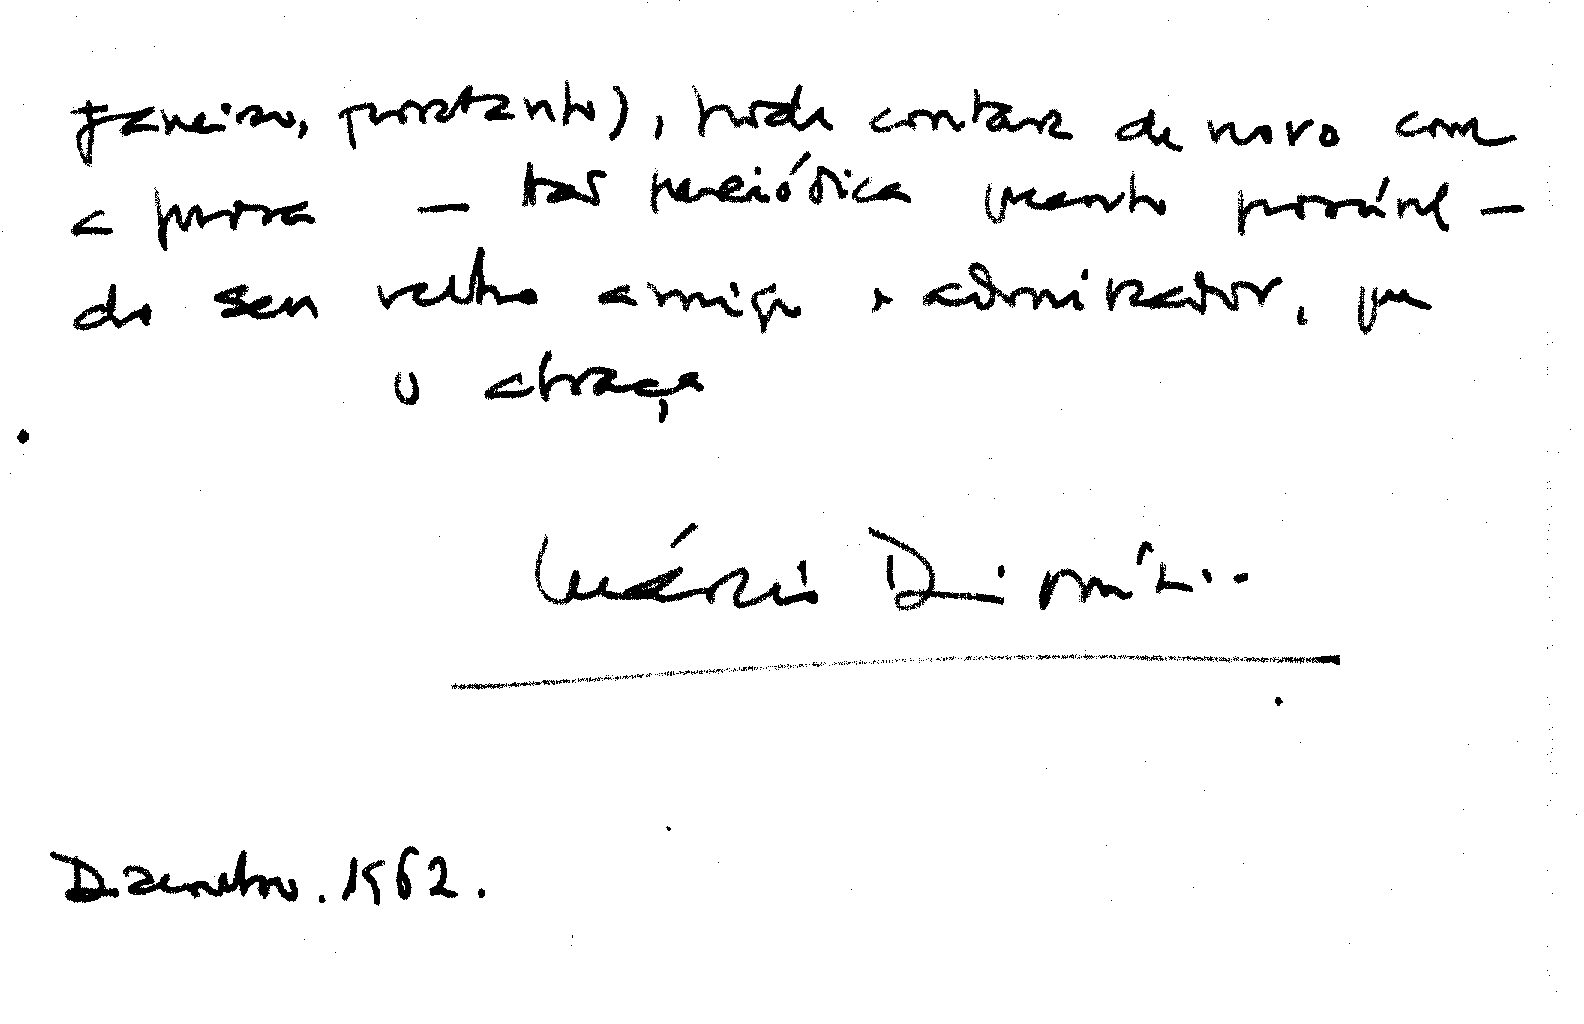 Janeiro, portanto), pode contar de novo com
a prosa — tão periódica quanto possível —
do seu velho amigo e admirador, que
o abraça
Mário Dionísio
Dezembro. 1962.